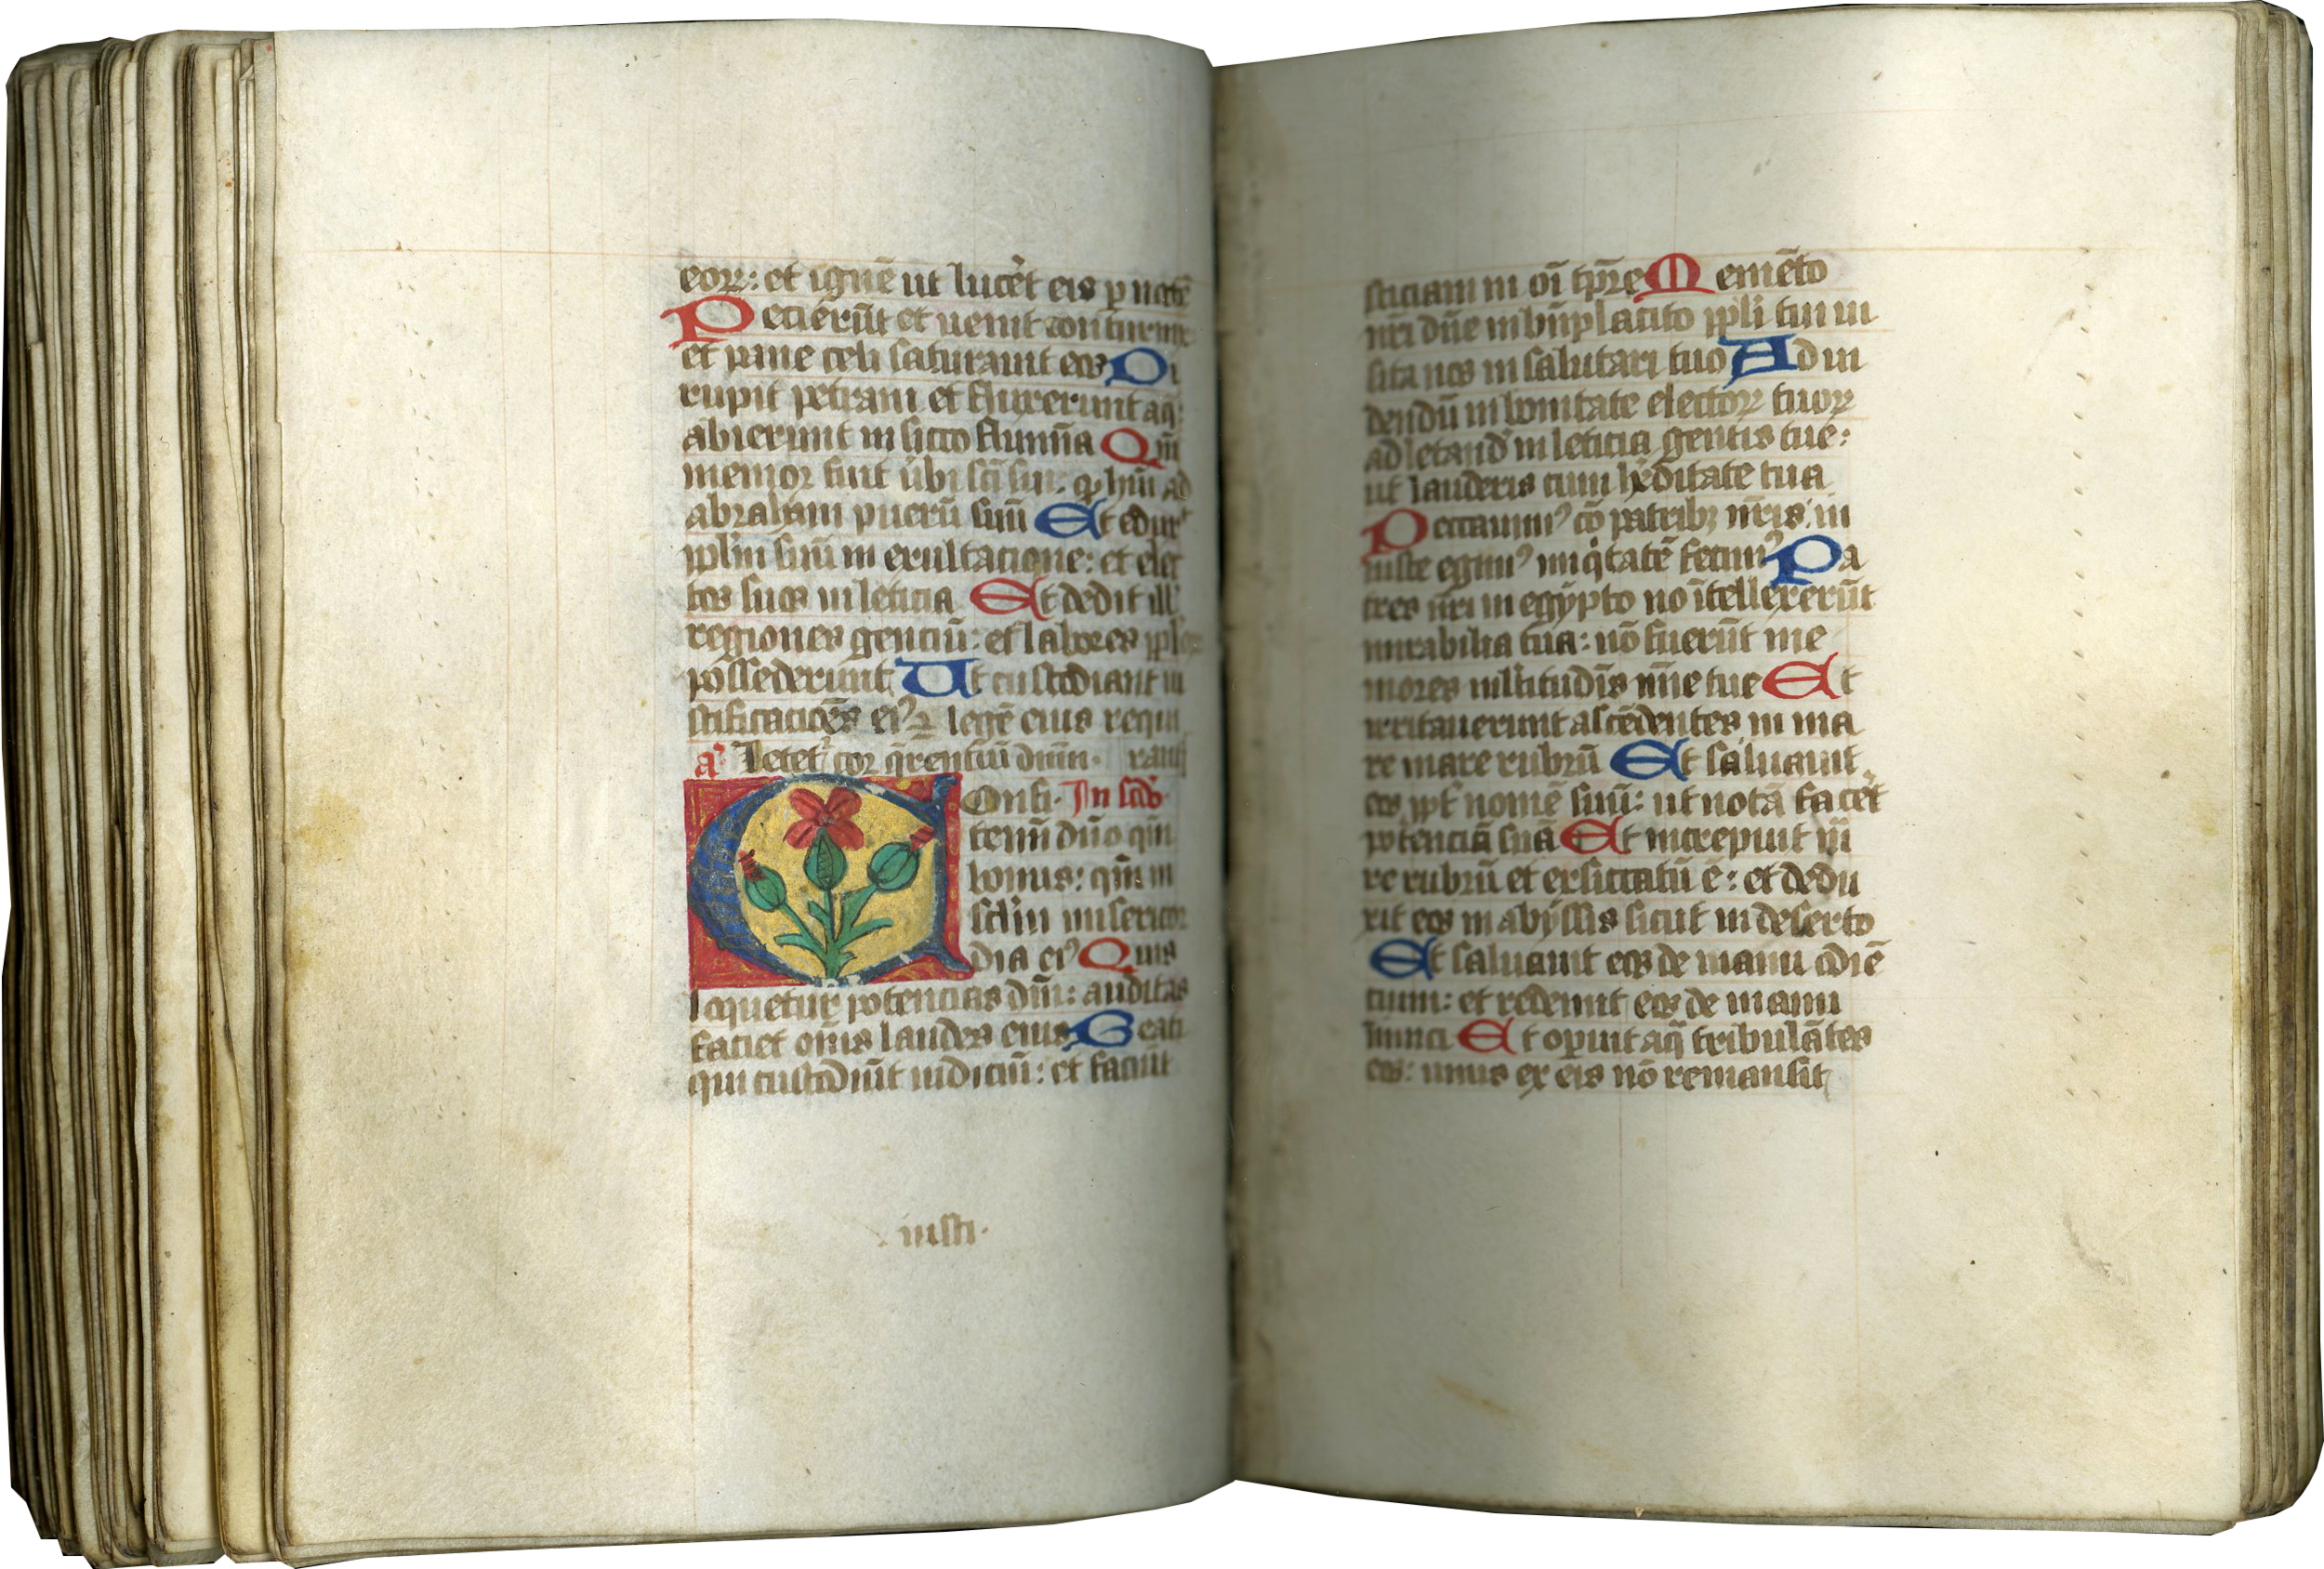 eoꝝ: et ignē ut lucet̉ eis p noctē
Pecierūt et uenit coturnix
et pane celi saturauit eos Di
rupit petram et fluxerunt aq̄:
abierunt in sicco flumīa Qm̄
memor fuit úbi scī sui: q̄ hūit ad
abraham puerū suū Et edux̉
pplm̄ suū in exultacione: et elec
tos suos in leticia Et dedit ill̉
regiones genciū: et labores ppl̉oꝝ
possederunt Ut custodiant iu
stificacōēs ei⁹ ⁊ legē eius requi
a᷒ Letet̉ cor q̄rentiū dnm̄. rant̉
Confi. In scl̄o
temī dn̄o qm̄
bonus: qm̄ in
sclm̄ misericor
dia ei⁹ Quis
loquetur potencias dn̄i: auditas
faciet om̄s laudes eius Beati
qui custodiūt iudiciū: et faciūt
iusti.
sticiam in oī tp̄re Memēto
nr̄i dn̄e in bn̄placito ppli tui ui
sita nos in salutari tuo Ad ui
dendū in bonitate electoꝝ tuoꝝ
ad letand̄ in leticia gentis tue:
ut lauderis cum hēditate tua
Peccauim⁹ cō patribꝫ nr̄is: in
iuste egim⁹ iniq̇tatē fecim⁹ Pa
tres nr̄i in egypto nō ītellexerūt
mirabilia tua: nō fuerūt me
mores mltitudīs mīe tue Et
irritauerunt ascēdentes in ma
re mare rubrū Et saluauit
eos ppt̉ nomē suū: ut notā facet̉
potenciā suā Et increpuit ma
re rubrū et exsiccatū ē: et dedu
xit eos in abyssis sicut in deserto
Et saluauit eos de manu odiē
cium: et redemit eos de manu
inimici Et opuit aq̄ tribulātes
eos: unus ex eis nō remansit